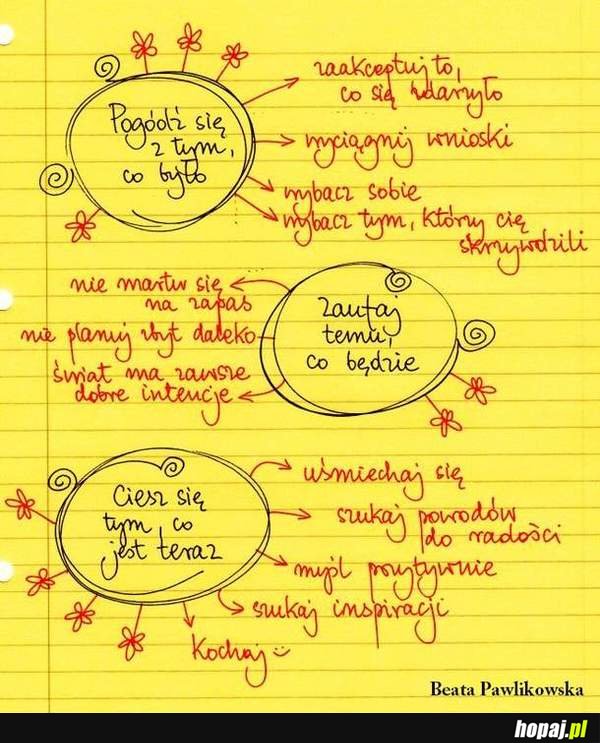 Pogódź się
z tym,
co było
zaakceptuj to,
co się zdarzyło
wyciągnij wnioski
wybacz sobie
wybacz tym, którzy cię
skrzywdzili
Zaufaj
temu,
co będzie
nie martw się
na zapas
nie planuj zbyt daleko
świat ma zawsze
dobre intencje
Ciesz się
tym, co
jest teraz
uśmiechaj się
szukaj powodów
do radości
myśl pozytywnie
szukaj inspiracji
Kochaj
Beata Pawlikowska
hopaj.pl